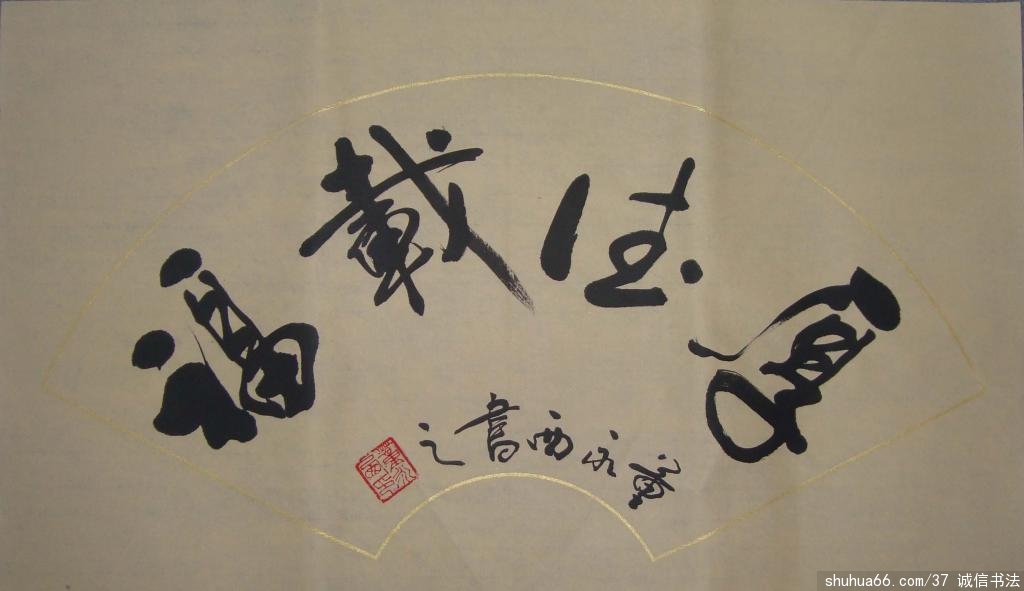 厚德載福
董永西書之
shuhua66.com/37 诚信书法